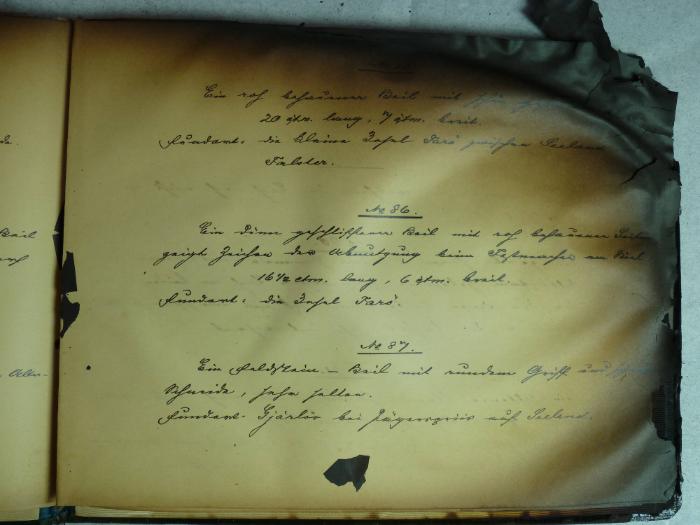 de.
Beil
Ein roh behauener Beil mit
20 ctm. lang, 7 ctm. breit.
Fundort: die kleine Insel Farö zwischen Seeland
Falster.
No 86.
Ein dünn geschliffenes Beil mit roh behauenen Seiten
zeigt Zeichen der Abnutzung beim Festmachen am Stiel
16 1/2 ctm. lang, 6 ctm. breit.
Fundort: die Insel Farö.
No 87.
Ein Feldstein-Beil mit rundem Griff und
Schneide, sehr selten.
Fundort. Gjärlöv bei Jägerspriis auf Seeland.